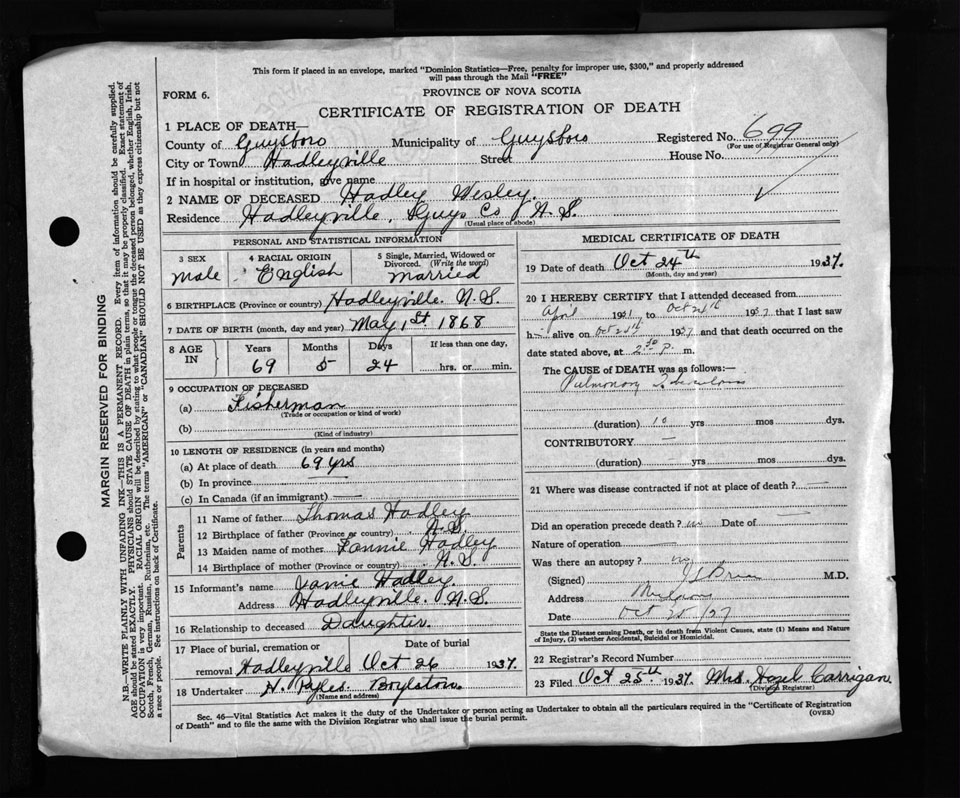 This form if placed in an envelope, marked "Dominion Statistics—Free, penalty for improper use, $300," and properly addressed
will pass through the Mail "FREE"
FORM 6.
PROVINCE OF NOVA SCOTIA
CERTIFICATE OF REGISTRATION OF DEATH
1 PLACE OF DEATH—
County of Guysboro Municipality of Guysboro Registered No. 699
(For use of Registrar General only)
City or Town Hadleyville Street House No.
If in hospital or institution, give name
2 NAME OF DECEASED Hadley Wesley.
Residence Hadleyville, Guys Co N.S.
(Usual place of abode)
PERSONAL AND STATISTICAL INFORMATION
3 SEX 4 RACIAL ORIGIN 5 Single, Married, Widowed or
Divorced. (Write the word)
Male English Married
6 BIRTHPLACE (Province or country) Hadleyville. N.S.
7 DATE OF BIRTH (month, day and year) May 1st. 1868
8 AGE IN Years Months Days If less than one day,
69 5 24 hrs. or min.
9 OCCUPATION OF DECEASED
(a) Fisherman
(Trade or occupation or kind of work)
(b)
(Kind of industry)
10 LENGTH OF RESIDENCE (in years and months)
(a) At place of death 69 yrs
(b) In province
(c) In Canada (if an immigrant)
Parents
11 Name of father Thomas Hadley
12 Birthplace of father (Province or country) N.S.
13 Maiden name of mother Fannie Hadley
14 Birthplace of mother (Province or country) N.S.
15 Informant's name Hadley
Address Hadleyville. N.S.
16 Relationship to deceased Daughter.
17 Place of burial, cremation or Date of burial
removal Hadleyville Oct 26 1937.
18 Undertaker H. Boylston
(Name and address)
MEDICAL CERTIFICATE OF DEATH
19 Date of death Oct 24th 1937.
(Month, day and year)
20 I HEREBY CERTIFY that I attended deceased from
April 1931 to Oct 24th 1937 that I last saw
h— alive on Oct 24th 1937 and that death occurred on the
date stated above, at 2.30 P. m.
The CAUSE of DEATH was as follows:—
Pulmonary Tuberculosis
(duration) 10 yrs mos dys.
CONTRIBUTORY —
(duration) yrs mos dys.
21 Where was disease contracted if not at place of death? —
Did an operation precede death? no Date of —
Nature of operation —
Was there an autopsy? no
(Signed) M.D.
Address
Date Oct
State the Disease causing Death, or in death from Violent Causes, state (1) Means and Nature
of Injury, (2) whether Accidental, Suicidal or Homicidal.
22 Registrar's Record Number
23 Filed Oct 25th 1937. Mrs. Hazel Carrigan
(Division Registrar)
Sec. 46—Vital Statistics Act makes it the duty of the Undertaker or person acting as Undertaker to obtain all the particulars required in the "Certificate of Registration
of Death" and to file the same with the Division Registrar who shall issue the burial permit.
(OVER)
MARGIN RESERVED FOR BINDING
N.B.—WRITE PLAINLY WITH UNFADING INK—THIS IS A PERMANENT RECORD. Every item of information should be carefully supplied.
AGE should be stated EXACTLY. PHYSICIANS should STATE CAUSE OF DEATH in plain terms, so that it may be properly classified. Exact statement of
OCCUPATION is very important. RACIAL ORIGIN will be described by stating to what people or tongue the deceased person belonged, whether English, Irish,
Scotch, French, German, Russian, Ruthenian, etc. The terms "AMERICAN" or "CANADIAN" SHOULD NOT BE USED as they express citizenship but not
a race or people. See instructions on back of Certificate.